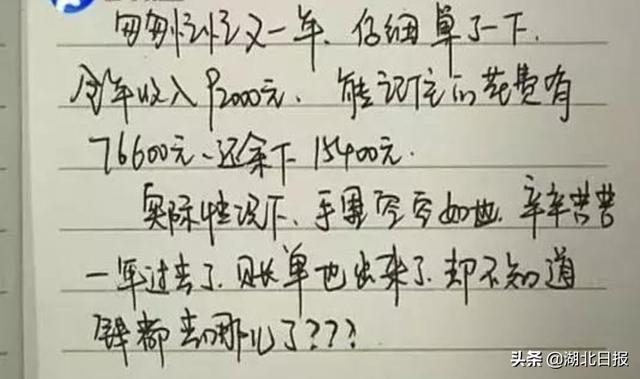 匆匆忙忙又一年、仔细算了一下.
全年收入92000元、能记住的花费有
76600元、还余下15400元.
实际情况下、手里空空如也、辛辛苦苦
一年过去了、账单也出来了、却不知道
钱都去哪儿了???
头条 @湖北日报